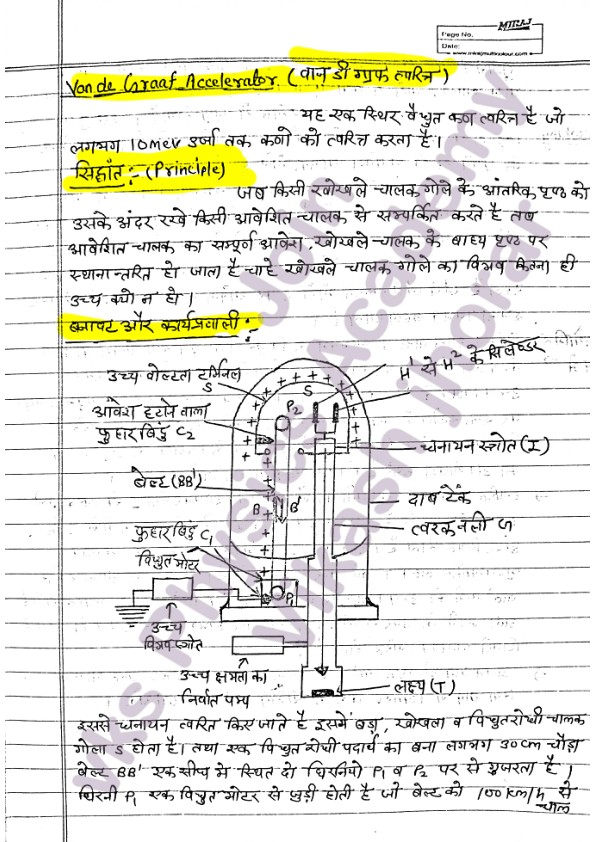 MIRAJ
Page No.
Date:
www.mirajmulticolour.com
Van de Graaf Accelerator (वान डी ग्राफ त्वरित्र)
यह एक स्थिर वैद्युत कण त्वरित्र है जो
लगभग 10 MeV उर्जा तक कणों को त्वरित करता है।
सिद्धांत :- (Principle)
जब किसी खोखले चालक गोले के आंतरिक पृष्ठ को
उसके अंदर रखे किसी आवेशित चालक से सम्पर्कित करते है तब
आवेशित चालक का सम्पूर्ण आवेश, खोखले चालक के बाह्य पृष्ठ पर
स्थानान्तरित हो जाता है चाहे खोखले चालक गोले का विभव कितना ही
उच्च क्यो न हो।
बनावट और कार्यप्रणाली :-
उच्च वोल्टता टर्मिनल
S
S
H¹ से H² के सिलेण्डर
आवेश हटाने वाला
फुहार बिंदु C₂
P₂
धनायन स्त्रोत (I)
बेल्ट (BB')
B B'
दाब टैंक
त्वरक नली G
फुहार बिंदु C₁
विधुत मोटर
P₁
उच्च
विभव स्त्रोत
उच्च क्षमता का
निर्वात पम्प
लक्ष्य (T)
इससे धनायन त्वरित किए जाते है इसमें बड़ा, खोखला व विधुतरोधी चालक
गोला S होता है। तथा एक विधुत रोधी पदार्थ का बना लगभग 30cm चौड़ा
बेल्ट BB' एक सीध मे स्थित दो घिरनियो P₁ व P₂ पर से गुजरता है।
घिरनी P₁ एक विधुत मोटर से जुड़ी होती है जो बेल्ट को 100 km/h से
चाल
VKS Physics Academy
Join
Vikash Jhorar